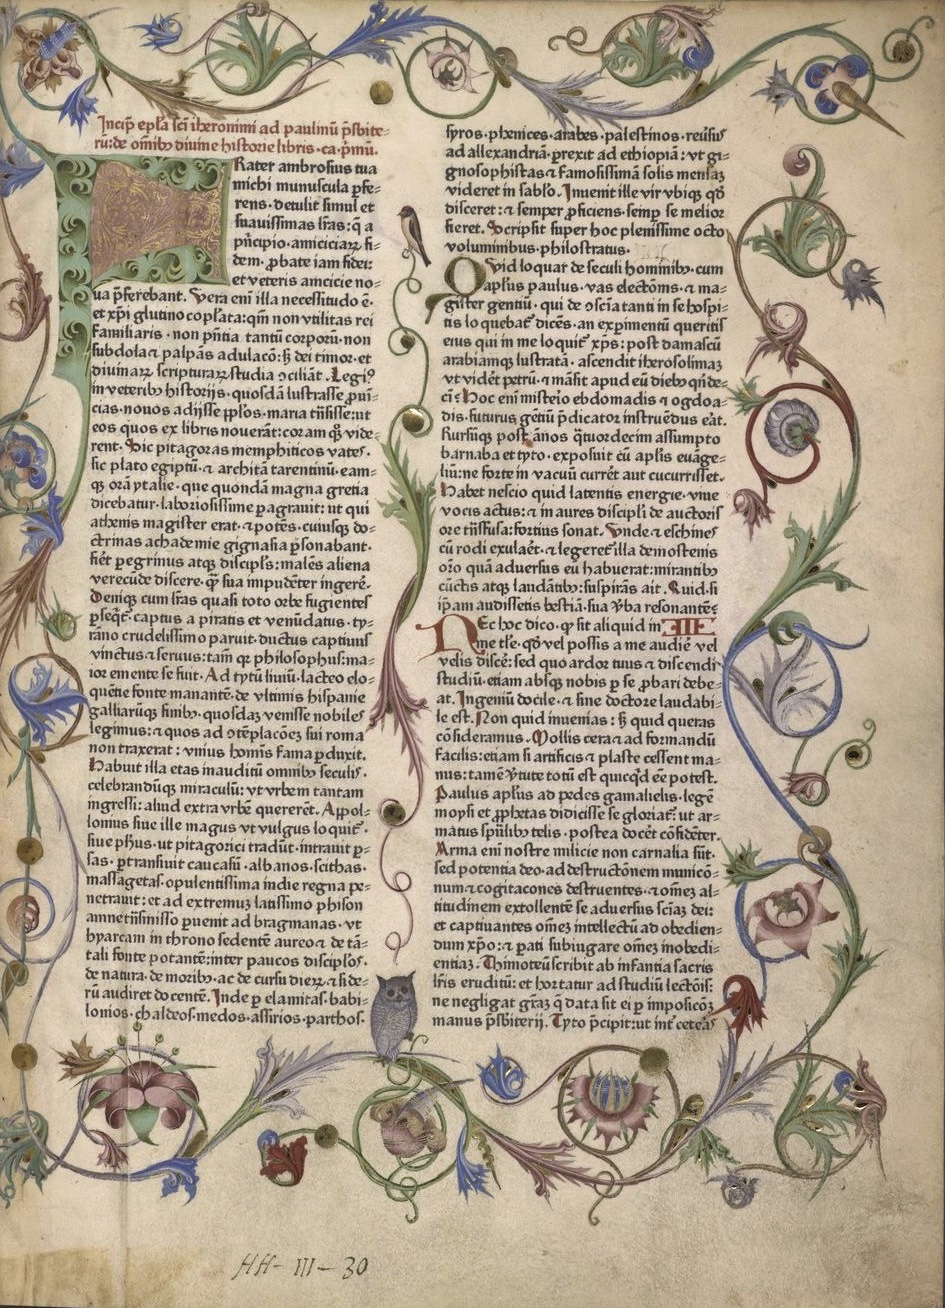 Incip̃ epl̃a sc̃i iheronimi ad paulinũ p̃sbite⸗
rũ: de om̃ib⁹ diuine historie libris· ca· p̃mũ.
Rater ambrosius tua
michi munuscula ꝑfe⸗
rens· detulit simul et
suauissimas lr̃as: q̃ a
pñcipio· amiciciaꝝ fi⸗
dem· ꝓbate iam fidei:
et veteris amicicie no⸗
ua p̃ferebant. Vera em̃ illa necessitudo ẽ·
et xp̃i glutino coplata: qm̃ non vtilitas rei
familiaris· non pñtia tantũ corporũ· non
subdola ⁊ palpãs adulacõ: s̃ dei timor· et
diuinaꝝ scripturaꝝ studia ↄciliãt. Legi⁹
in veterib⁹ historijs· quosdã lustrasse ꝓui⸗
cias· nouos adijsse ppl̃os· maria tñsisse: ut
eos quos ex libris nouerãt: coram q̃ vide⸗
rent. Sic pitagoras memphiticos vates·
sic plato egiptũ· ⁊ architã tarentinũ· eam⸗
qꝫ orã ytalie· que quondã magna gretia
dicebatur· laboriosissime ꝑagrauit: ut qui
athenis magister erat· ⁊ potẽs· cuiusqꝫ do⸗
ctrinas achademie gignasia ꝑsonabant·
fiẽt ꝑegrinus atqꝫ discipl̃s: malẽs aliena
verecũde discere· qꝫ̃ sua impudẽter ingerẽ.
Deniqꝫ cum lr̃as quasi toto orbe fugientes
ꝑseqt̃· captus a piratis et venũdatus· ty⸗
rãno crudelissimo paruit· ductus captiuus
vinctus ⁊ seruus: tam̃ qꝛ philosophus: ma⸗
ior emente se fuit. Ad tytũ liuiũ· lacteo elo⸗
quẽtie fonte manantẽ· de vltimis hispanie
galliarũqꝫ finib⁹· quosdaꝫ venisse nobiles
legimus: ⁊ quos ad ↄtẽplacõeꝫ sui roma
non traxerat: vnius hom̃is fama ꝑduxit.
Habuit illa etas inauditũ omnib⁹ seculis·
celebrandũqꝫ miraculũ: ut vrbem tantam
ingressi: aliud extra vrbẽ quererẽt. Appol⸗
lonius siue ille magus vt vulgus loquit̃·
siue ph̃us· ut pitagorici tradũt· intrauit ꝑ⸗
sas· ꝑtransiuit caucasũ· albanos· scithas·
massagetas· opulentissima indie regna pe⸗
netrauit: et ad extremuꝫ latissimo phison
amne tñsmisso ꝑuenit ad bragmanas· vt
hyarcam in throno sedentẽ aureo ⁊ de tã⸗
tali fonte potantẽ: inter paucos discipl̃os·
de natura· de morib⁹· ac de cursu dieꝝ· ⁊ side⸗
rũ audiret docentẽ. Inde ꝑ elamitas· babi⸗
lonios· chaldeos· medos· assirios· parthos·
syros· phenices· arabes· palestinos· reũsus
ad allexandriã· ꝑrexit ad ethiopiã: vt gi⸗
gnosophistas ⁊ famosissimã solis mensaꝫ
videret in sablo. Inuenit ille vir vbiqꝫ qd̃
disceret: ⁊ semper ꝓficiens· semꝑ se melior
fieret. Scripsit super hoc plenissime octo
voluminibus· philostratus·
Quid loquar de seculi hominib⁹· cum
apl̃us paulus· vas electõnis· ⁊ ma⸗
gister gentiũ· qui de ↄsciã tanti in se hospi⸗
tis loquebat̃ dicẽs· an exꝑimentũ queritis
eius qui in me loquit̃ xp̃s: post damascũ
arabiamqꝫ lustratã· ascendit iherosolimaꝫ
vt vidẽt petrũ· ⁊ mãsit apud eũ dieb⁹ qñde⸗
ci? Hoc em̃ misteio ebdomadis ⁊ ogdoa⸗
dis· futurus gentiũ p̃dicator instruẽdus eãt.
Rursũqꝫ post ãnos q̃tuordecim assumpto
barnaba et tyto· exposuit eũ apl̃is euãge⸗
liũ: ne forte in vacuũ currẽt aut cucurrisset.
Habet nescio quid latentis energie· viue
vocis actus: ⁊ in aures discipl̃i de auctoris
ore tñsfusa: fortius sonat. Vnde ⁊ eschines
cũ rodi exulaẽt· ⁊ legeret̃ illa demostenis
orõ quã aduersus eũ habuerat: mirantib⁹
cũctis atqꝫ laudãtib⁹: suspirãs ait. Quid si
ip̃am audissetis bestiã· sua v̾ba resonantẽ?
NEc hoc dico· qꝫ sit aliquid in
me tl̃e· qd̾ vel possis a me audiẽ vel
velis discẽ: sed quo ardor tuus ⁊ discendi
studiũ· etiam absqꝫ nobis ꝑ se ꝓbari debe⸗
at. Ingeniũ docile· ⁊ sine doctore laudabi⸗
le est. Non quid inuenias: s̃ quid queras
cõsideramus. Mollis cera ⁊ ad formandũ
facilis: etiam si artificis ⁊ plaste cessent ma⸗
nus: tamẽ v̾tute totũ est quicqd̾ eẽ potest.
Paulus apl̃us ad pedes gamalielis· legẽ
moysi et ꝓphetas didicisse se gloriat̃: ut ar⸗
matus spũlib⁹ telis· postea docẽt cõfidẽter.
Arma em̃ nostre milicie non carnalia sũt·
sed potentia deo· ad destructõnem municõ⸗
num ⁊ cogitacones destruentes· ⁊ om̃eꝫ al⸗
titudinem extollentẽ se aduersus sciãꝫ dei:
et captiuantes om̃eꝫ intellectũ ad obedien⸗
dum xp̃o: ⁊ ꝑati subiugare om̃eꝫ inobedi⸗
entiaꝫ. Thimoteũ scribit ab infantia sacris
lr̃is eruditũ: et hortatur ad studiũ lectõis:
ne negligat gr̃aꝫ q̃ data sit ei ꝑ imposicõꝫ
manus p̃sbiterij. Tyto p̃cipit: ut int̾ ceteas
HH- III- 30